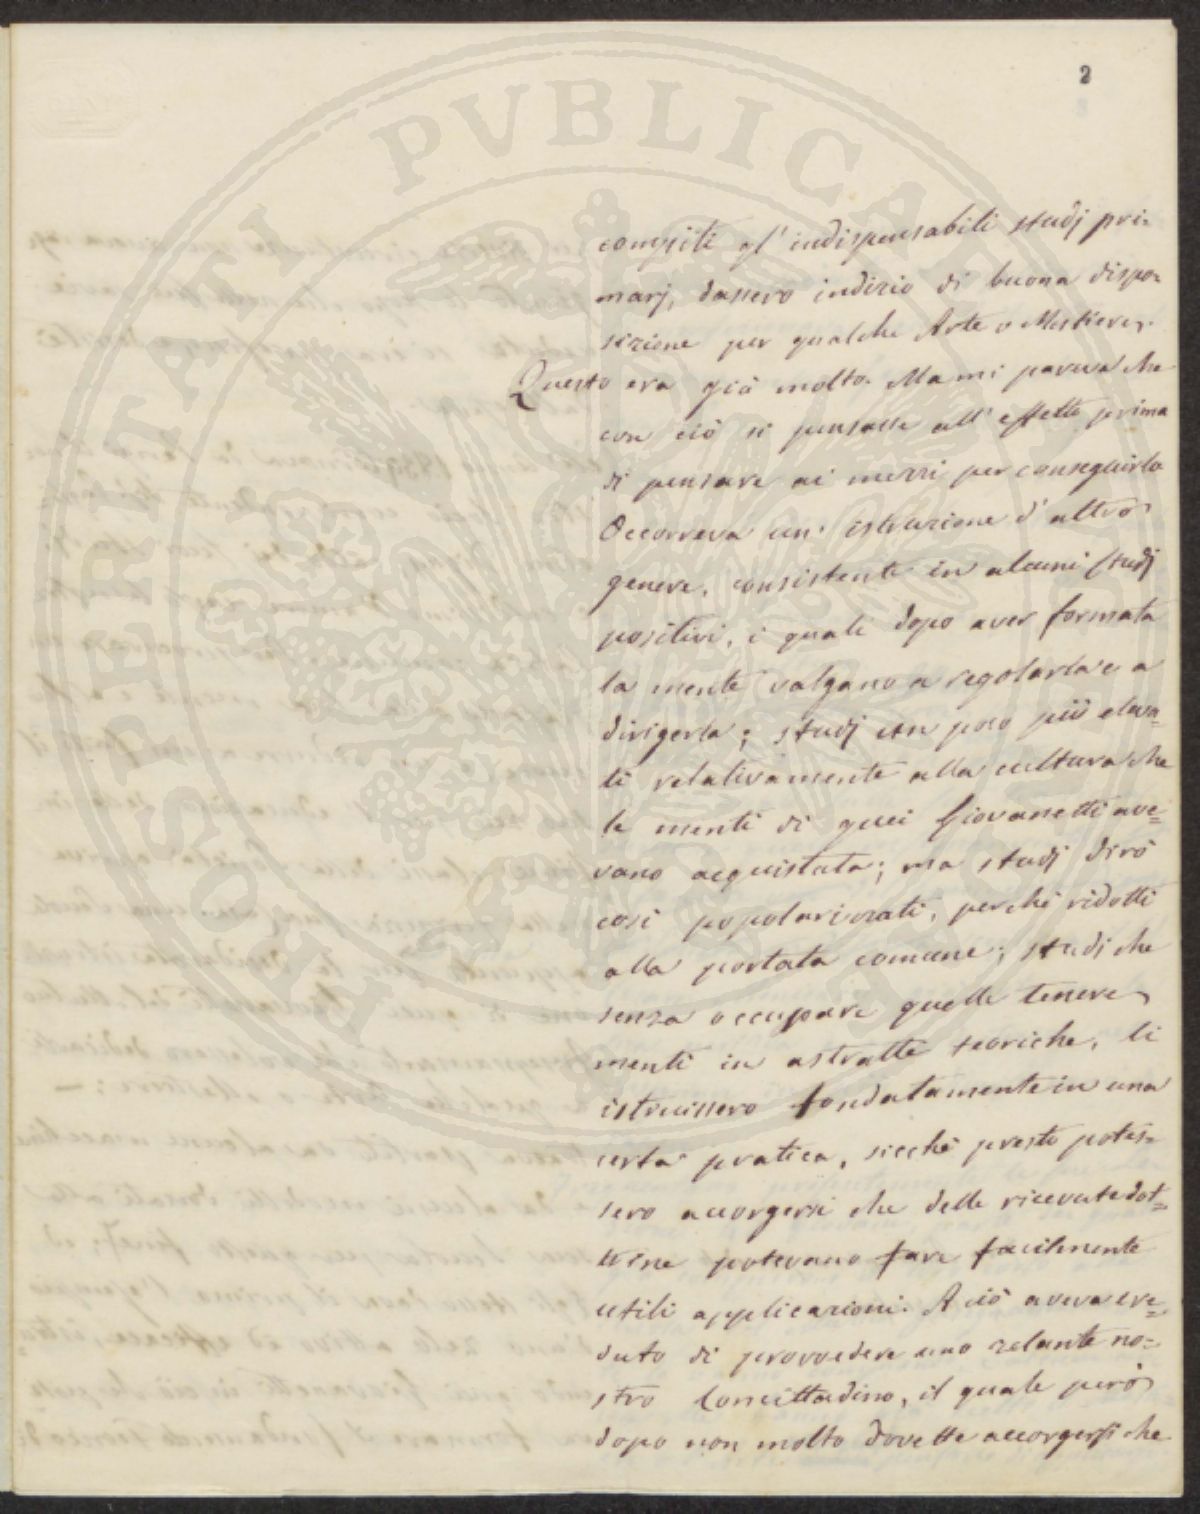 2
compiti gl' indispensabili studj pri-
marj, dassero indizio di buona dispo-
sizione per qualche Arte o Mestiere.
Questo era già molto. Ma mi pareva che
con ciò si pensasse all' effetto prima
di pensare ai mezzi per conseguirlo
Occorreva un' istruzione d' altro
genere, consistente in alcuni studj
positivi, i quali dopo aver formata
la mente valgano a regolarla e a
dirigerla; studj un poco più eleva-
ti relativamente alla cultura che
le menti di quei Giovanetti ave=
vano acquistata; ma studj dirò
così popolarizzati, perchè ridotti
alla portata comune; studj che
senza occupare quelle tenere
menti in astratte teoriche, li
istruissero fondatamente in una
certa pratica, sicchè presto potes=
sero accorgersi che delle ricevute dot=
trine potevano fare facilmente
utili applicazioni. A ciò aveva cre=
duto di provvedere uno zelante no=
stro Concittadino, il quale però
dopo non molto dovette accorgersi che
PROSPERITATI PVBLICAE